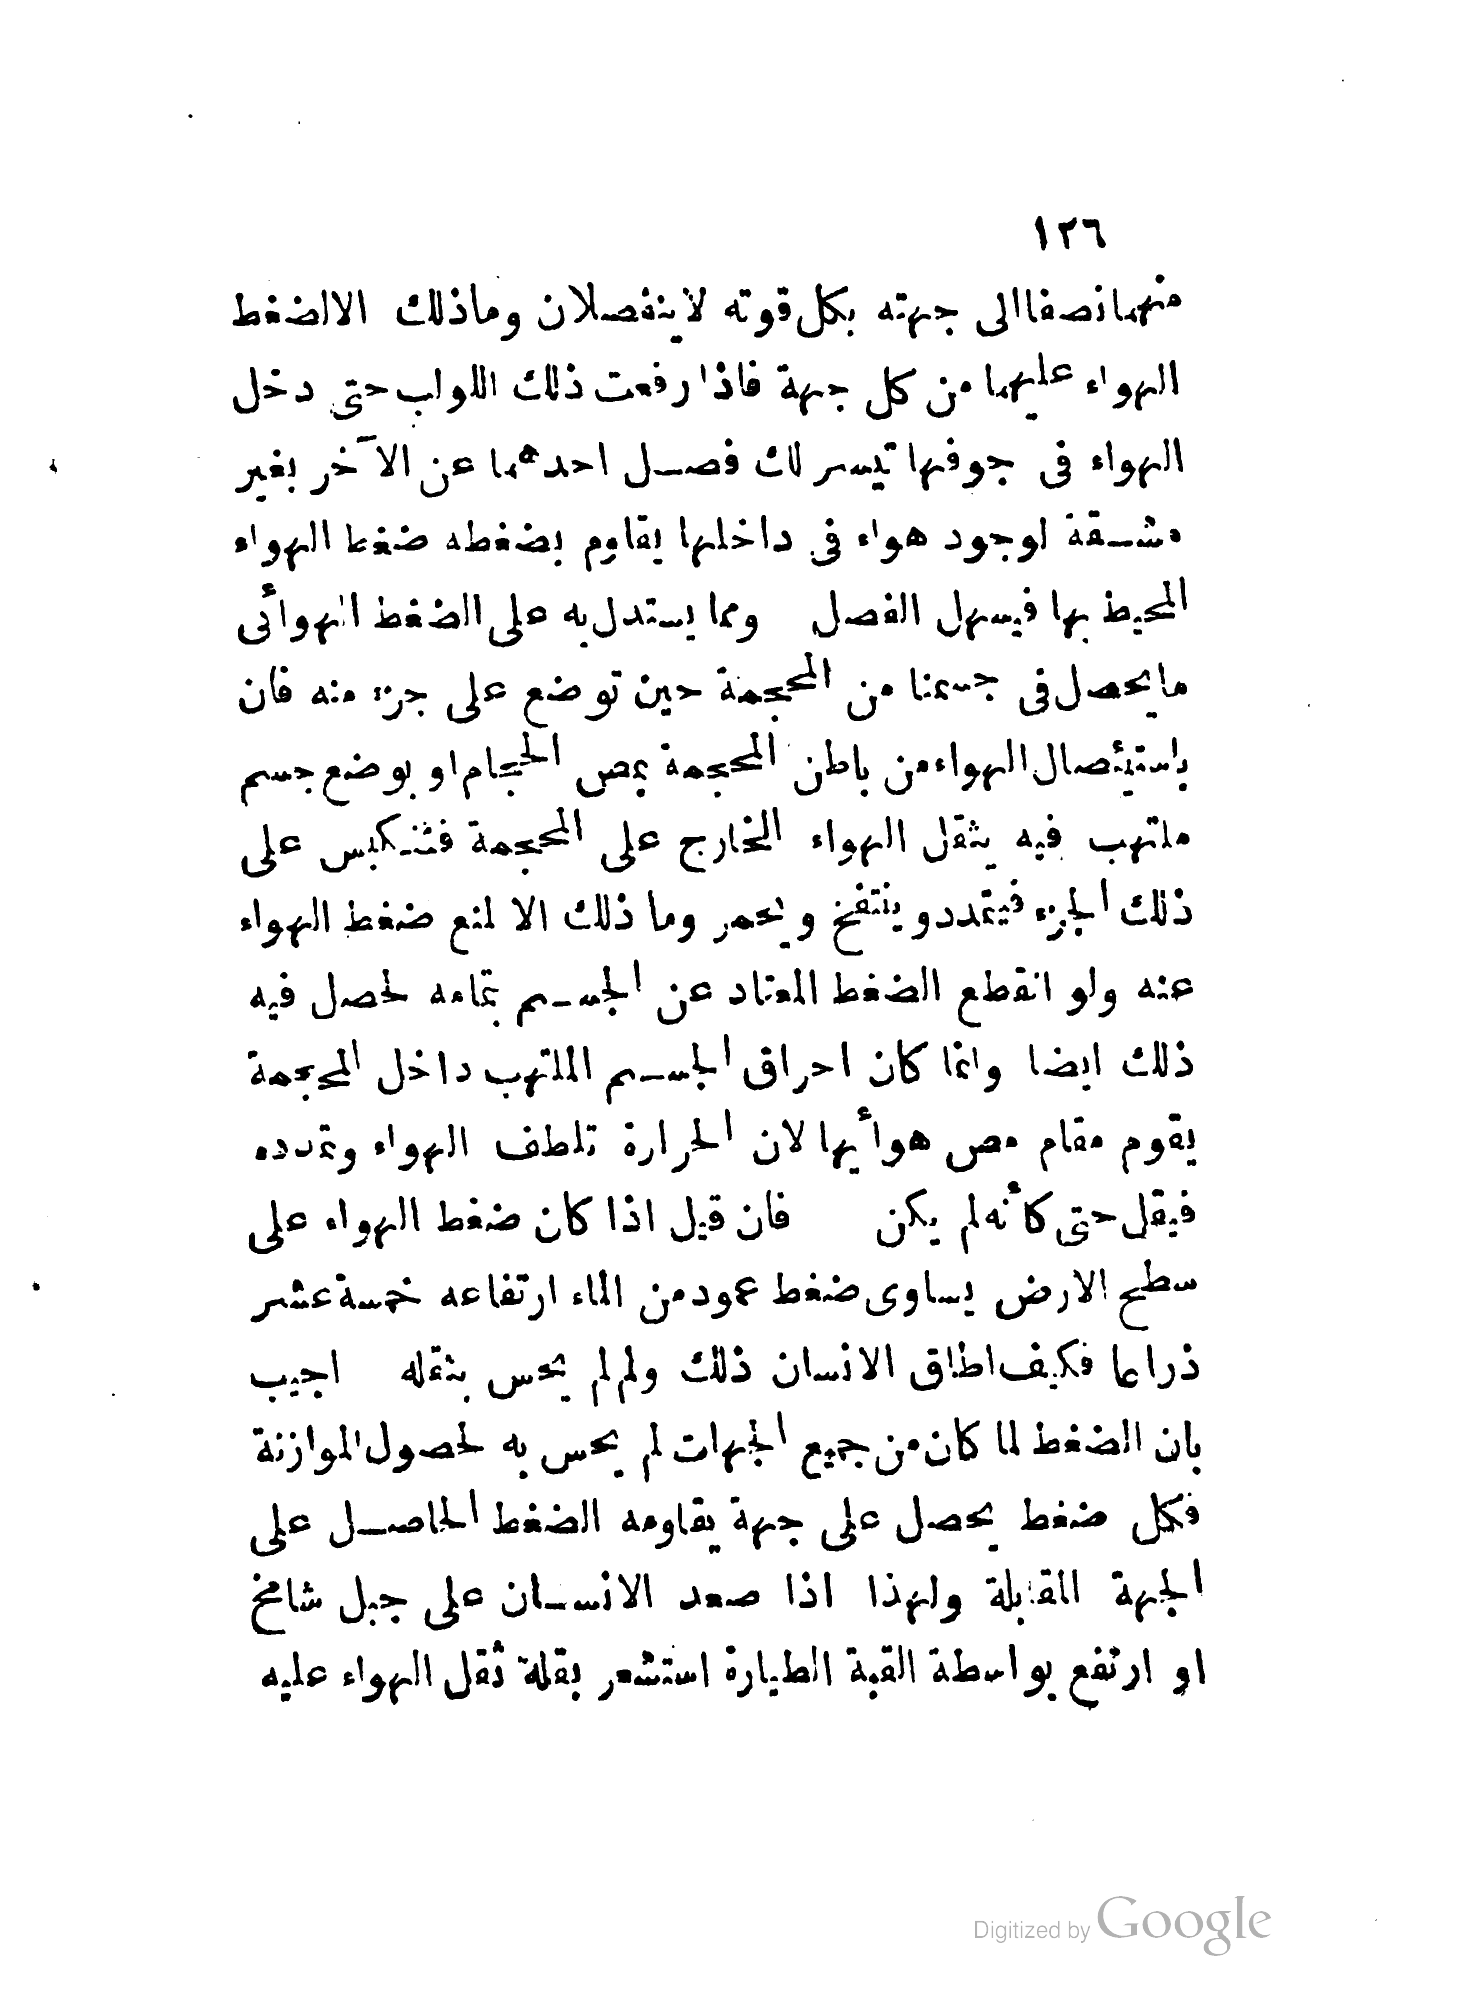 ١٢٦
منهما نصفا الى جهته بكل قوته لا ينفصلان وما ذلك الا لضغط
الهواء عليهما من كل جهة فاذا رفعت ذلك اللولب حتى دخل
الهواء فى جوفها تيسر لك فصل احدهما عن الآخر بغير
مشقة لوجود هواء فى داخلها يقاوم بضغطه ضغط الهواء
المحيط بها فيسهل الفصل ومما يستدل به على الضغط الهوائى
ما يحصل فى جسمنا من المحجمة حين توضع على جزء منه فان
باستيئصال الهواء من باطن المحجمة بمص الحجام او بوضع جسم
ملتهب فيه يثقل الهواء الخارج على المحجمة فتنكبس على
ذلك الجزء فيتمدد وينتفخ ويحمر وما ذلك الا لمنع ضغط الهواء
عنه ولو انقطع الضغط المعتاد عن الجسم بتمامه لحصل فيه
ذلك ايضا وانما كان احراق الجسم الملتهب داخل المحجمة
يقوم مقام مص هوأيها لان الحرارة تلطف الهواء وتمدده
فيقل حتى كأنه لم يكن فان قيل اذا كان ضغط الهواء على
سطح الارض يساوى ضغط عمود من الماء ارتفاعه خمسة عشر
ذراعا فكيف اطاق الانسان ذلك ولم لم يحس بثقله اجيب
بان الضغط لما كان من جميع الجهات لم يحس به لحصول الموازنة
فكل ضغط يحصل على جهة يقاومه الضغط الحاصل على
الجهة المقابلة ولهذا اذا صعد الانسان على جبل شامخ
او ارتفع بواسطة القبة الطيارة استشعر بقلة ثقل الهواء عليه
Digitized by Google